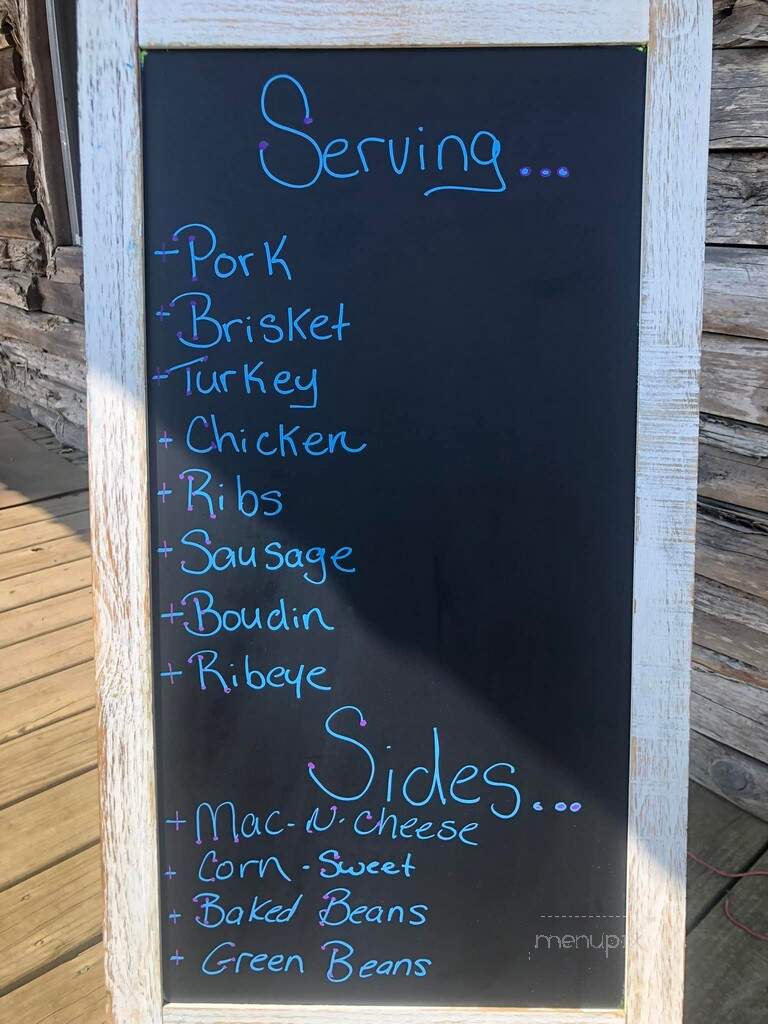 Serving...
+ Pork
+ Brisket
+ Turkey
+ Chicken
+ Ribs
+ Sausage
+ Boudin
+ Ribeye
Sides...
+ Mac-N-Cheese
+ Corn - Sweet
+ Baked Beans
+ Green Beans
menupix